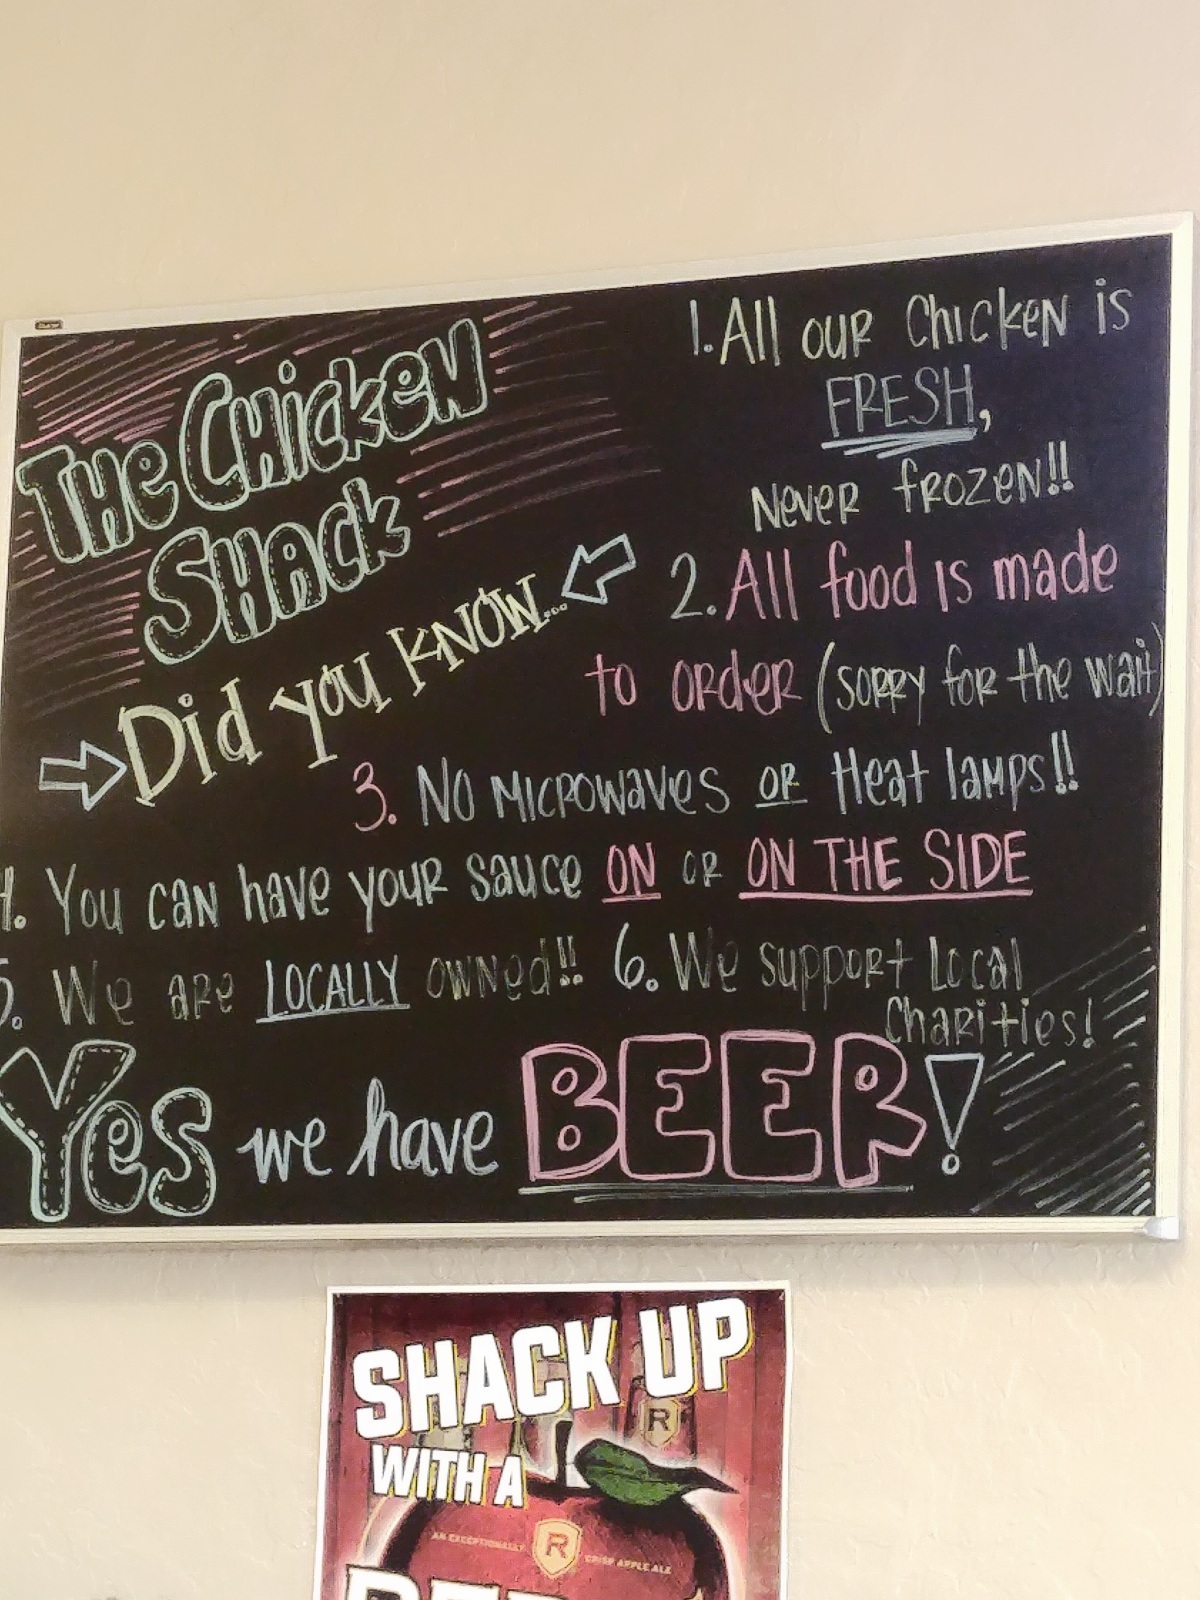 THE CHICKEN
SHACK
Did you KNOW...
1. All OUR CHICKEN is
FRESH,
NEVER fROZEN!!
2. All food is made
to ORDER (SORRY foR the wait)
3. NO MICROWAVES OR Heat lamps!!
4. YOU CAN have youR sauce ON OR ON THE SIDE
5. We are LOCALLY OWNed!!
6. We suppoRt Local
ChaRities!
Yes we have BEER!
SHACK UP
WITH A
AN EXCEPTIONALLY R CRISP APPLE ALE
R